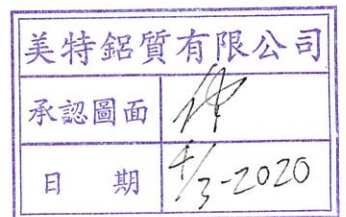 美特鋁質有限公司
承認圖面
日 期 4/3-2020